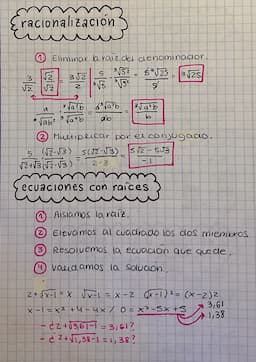 racionalización
① Eliminar la raíz del denominador.
3/√2 · √2/√2 = 3√2/2 5/³√5 · ³√5²/³√5² = 5³√25/5 = ³√25
② Multiplicar por el conjugado.
5/(√2+√3) · (√2-√3)/(√2-√3) = 5(√2-√3)/(2-3) = (5√2-5√3)/-1
ecuaciones con raíces
① Aislamos la raíz.
② Elevamos al cuadrado los dos miembros
③ Resolvemos la ecuación que quede.
④ Validamos la solución.
2+√x-1 = x √x-1 = x-2 (√x-1)² = (x-2)²
x-1 = x²+4-4x / 0 = x²-5x+5 3,61
1,38
- ¿2+√3,61-1 = 3,61?
- ¿2+√1,38-1 = 1,38?